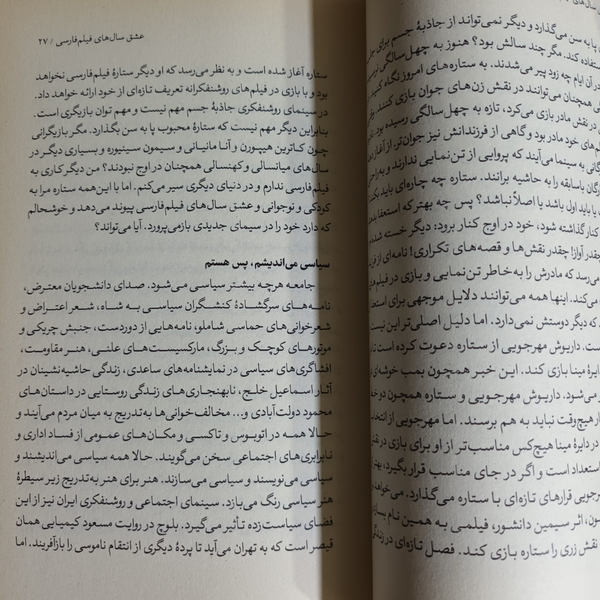 پا به سن می‌گذارد و دیگر نمی‌تواند از جاذبهٔ جسم برای
استفاده کند. مگر چند سالش بود؟ هنوز به چهل‌سالگی
در آن ایام چه زود پیر می‌شدند. به ستاره‌های امروز نگاه کنید
همچنان می‌توانند در نقش زن‌های جوان بازی کنند.
در نقش مادر بازی می‌کرد، تازه به چهل‌سالگی رسیده بود.
مادر بود و گاهی از فرزندانش نیز جوان‌تر. از آغاز
به سینما می‌آیند که پروایی از تن‌نمایی ندارند و
باسابقه را به حاشیه برانند. ستاره چه چاره‌ای باید
یا باید اول باشد یا اصلاً نباشد؟ پس چه بهتر که استعفا
کنار گذاشته شود، خود در اوج کنار برود: دیگر خسته
چقدر آواز! چقدر نقش‌ها و قصه‌های تکراری! نامه‌ای از
می‌رسد که مادرش را به‌خاطر تن‌نمایی و بازی در
می‌کند. اینها همه می‌توانند دلایل موجهی برای
که دیگر دوستش نمی‌دارد. اما دلیل اصلی‌تر این
است. داریوش مهرجویی از ستاره دعوت کرده است تا
دایرهٔ مینا بازی کند. این خبر همچون بمب
می‌شود. داریوش مهرجویی و ستاره همچون دو
هیچ‌وقت نباید به هم برسند. اما مهرجویی از
در دایرهٔ مینا هیچ‌کس مناسب‌تر از او برای بازی در
استعداد است و اگر در جای مناسب قرار بگیرد،
مهرجویی قرارهای تازه‌ای با ستاره می‌گذارد.
اثر سیمین دانشور، فیلمی به همین نام
نقش زری را ستاره بازی کند. فصل تازه‌ای در
عشق سال‌های فیلم‌فارسی / ۲۷
ستاره آغاز شده است و به نظر می‌رسد که او دیگر ستارهٔ فیلم‌فارسی نخواهد
بود و با بازی در فیلم‌های روشنفکرانه تعریف تازه‌ای از خود ارائه خواهد داد.
در سینمای روشنفکری جاذبهٔ جسم مهم نیست و مهم توان بازیگری است.
بنابراین دیگر مهم نیست که ستارهٔ محبوب پا به سن بگذارد. مگر بازیگرانی
چون کاترین هپبورن و آنا مانیانی و سیمون سینیوره و بسیاری دیگر در
سال‌های میانسالی و کهنسالی همچنان در اوج نبودند؟ من دیگر کاری به
فیلم‌فارسی ندارم و در دنیای دیگری سیر می‌کنم. اما با این‌همه ستاره مرا به
کودکی و نوجوانی و عشق سال‌های فیلم‌فارسی پیوند می‌دهد و خوشحالم
که دارد خود را در سیمای جدیدی بازمی‌پرورد. آیا می‌تواند؟
سیاسی می‌اندیشم، پس هستم
جامعه هرچه بیشتر سیاسی می‌شود. صدای دانشجویان معترض،
نامه‌های سرگشادهٔ کنشگران سیاسی به شاه، شعر اعتراض و
شعرخوانی‌های حماسی شاملو، نامه‌هایی از دوردست، جنبش چریکی و
موتورهای کوچک و بزرگ، مارکسیست‌های علنی، هنر مقاومت،
افشاگری‌های سیاسی در نمایشنامه‌های ساعدی، زندگی حاشیه‌نشینان در
آثار اسماعیل خلج، نابهنجاری‌های زندگی روستایی در داستان‌های
محمود دولت‌آبادی و... مخالف‌خوانی‌ها به‌تدریج به میان مردم می‌آیند و
حالا همه در اتوبوس و تاکسی و مکان‌های عمومی از فساد اداری و
نابرابری‌های اجتماعی سخن می‌گویند. حالا همه سیاسی می‌اندیشند و
سیاسی می‌نویسند و سیاسی می‌سازند. هنر برای هنر به‌تدریج زیر سیطرهٔ
هنر سیاسی رنگ می‌بازد. سینمای اجتماعی و روشنفکری ایران نیز از این
فضای سیاست‌زده تأثیر می‌گیرد. بلوچ در روایت مسعود کیمیایی همان
قیصر است که به تهران می‌آید تا پردهٔ دیگری از انتقام ناموسی را بازآفریند. اما